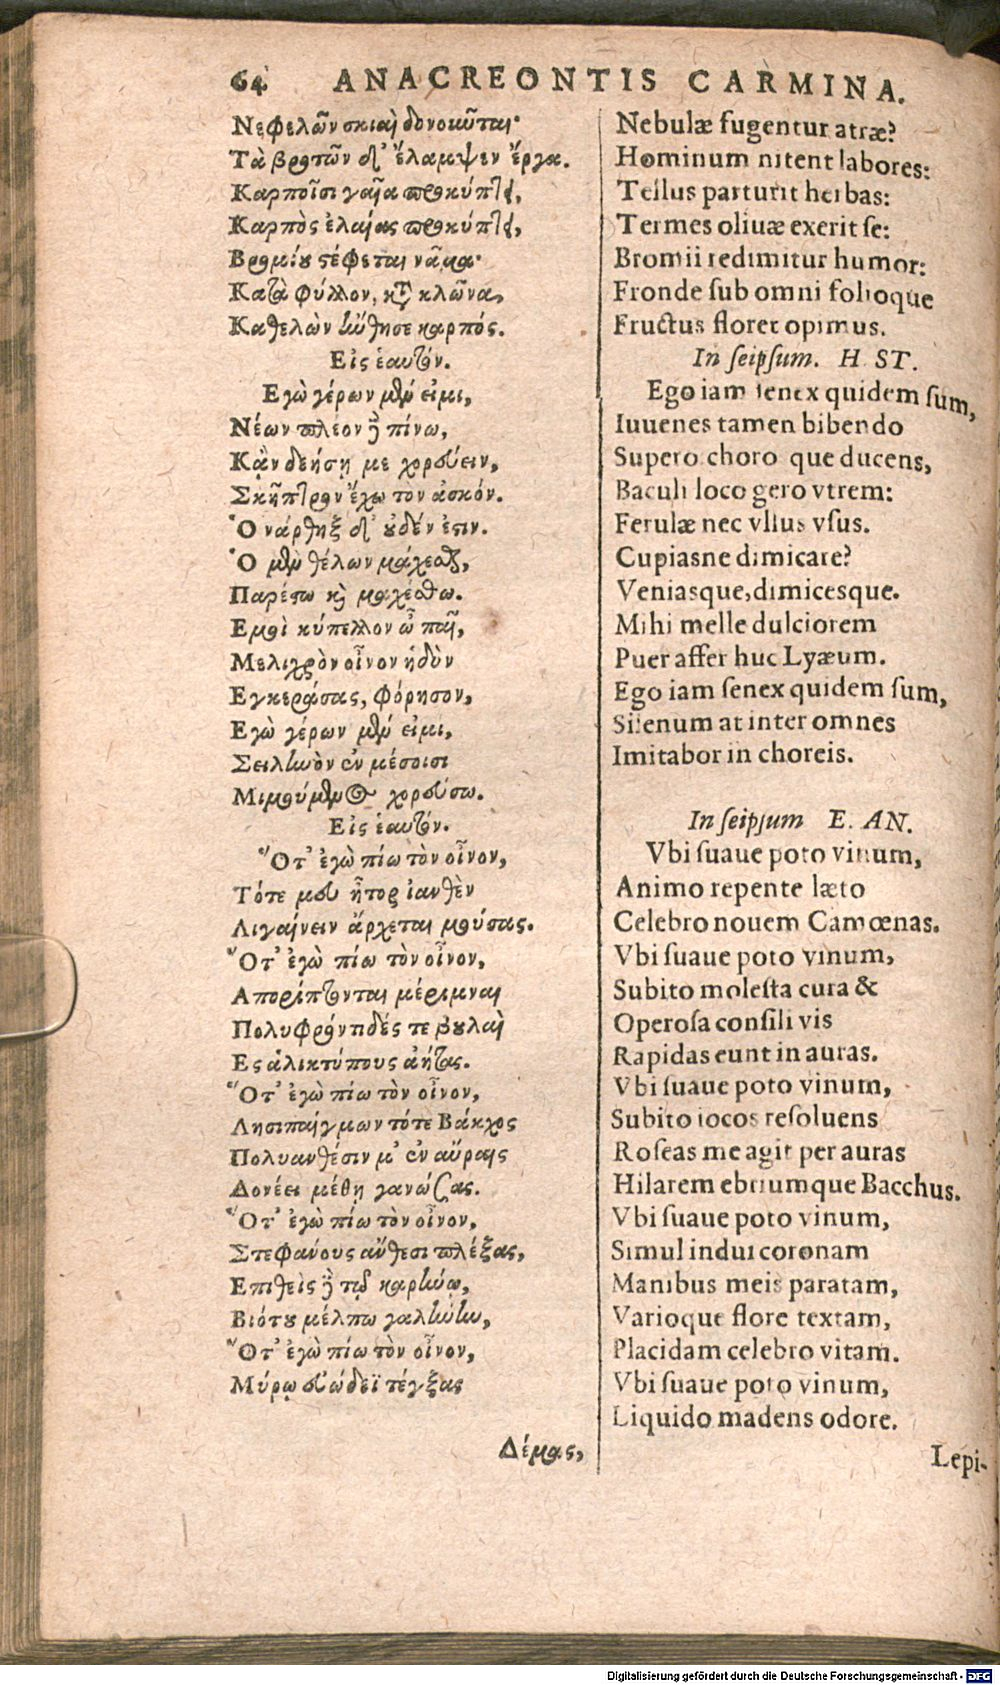 64 ANACREONTIS CARMINA.
Νεφελῶν σκιαὶ δονοῦται·
Τὰ βροτῶν δ' ἔλαμψεν ἔργα.
Καρποῖσι γαῖα προκύπτει,
Καρπὸς ἐλαίας προκύπτει,
Βρομίου στέφεται νᾶμα·
Κατὰ φύλλον, κατὰ κλῶνα,
Καθελὼν ἤνθησε καρπός.
Εἰς ἑαυτόν.
Εγὼ γέρων μέν εἰμι,
Νέων πλέον δὲ πίνω,
Κᾂν δεήσῃ με χορεύειν,
Σκῆπτρον ἔχω τὸν ἀσκόν.
Ὁ νάρθηξ δ' οὐδέν ἐστιν.
Ὁ μὲν θέλων μάχεσθαι,
Παρέστω καὶ μαχέσθω.
Εμοὶ κύπελλον ὦ παῖ,
Μελιχρὸν οἶνον ἡδὺν
Εγκεράσας, φόρησον,
Εγὼ γέρων μέν εἰμι,
Σειληνὸν ἐν μέσοισι
Μιμούμενος χορεύσω.
Εἰς ἑαυτόν.
Ὅτ' ἐγὼ πίω τὸν οἶνον,
Τότε μευ ἦτορ ἰανθὲν
Λιγαίνειν ἄρχεται μούσας.
Ὅτ' ἐγὼ πίω τὸν οἶνον,
Απορίπτονται μέριμναι
Πολυφρόντιδές τε βουλαὶ
Ες ἁλικτύπους ἀήτας.
Ὅτ' ἐγὼ πίω τὸν οἶνον,
Λησιπαίγμων τότε Βάκχος
Πολυανθέσιν μ' ἐν αὔραις
Δονέει μέθῃ γανώσας.
Ὅτ' ἐγὼ πίω τὸν οἶνον,
Στεφάνους ἄνθεσι πλέξας,
Επιθεὶς δὲ τῷ καρήνῳ,
Βιότου μέλπω γαλήνην,
Ὅτ' ἐγὼ πίω τὸν οἶνον,
Μύρῳ εὐώδεϊ τέγξας
Δέμας,
Nebulæ fugentur atræ?
Hominum nitent labores:
Tellus parturit herbas:
Termes oliuæ exerit se:
Bromii redimitur humor:
Fronde sub omni folioque
Fructus floret opimus.
In seipsum. H. ST.
Ego iam senex quidem sum,
Iuuenes tamen bibendo
Supero: choro que ducens,
Baculi loco gero vtrem:
Ferulæ nec vllus vsus.
Cupiasne dimicare?
Veniasque, dimicesque.
Mihi melle dulciorem
Puer affer huc Lyæum.
Ego iam senex quidem sum,
Silenum at inter omnes
Imitabor in choreis.
In seipsum E. AN.
Vbi suaue poto vinum,
Animo repente læto
Celebro nouem Camœnas.
Vbi suaue poto vinum,
Subito molesta cura &
Operosa consili vis
Rapidas eunt in auras.
Vbi suaue poto vinum,
Subito iocos resoluens
Roseas me agit per auras
Hilarem ebriumque Bacchus.
Vbi suaue poto vinum,
Simul indui coronam
Manibus meis paratam,
Varioque flore textam,
Placidam celebro vitam.
Vbi suaue poto vinum,
Liquido madens odore.
Lepi-
Digitalisierung gefördert durch die Deutsche Forschungsgemeinschaft - DFG